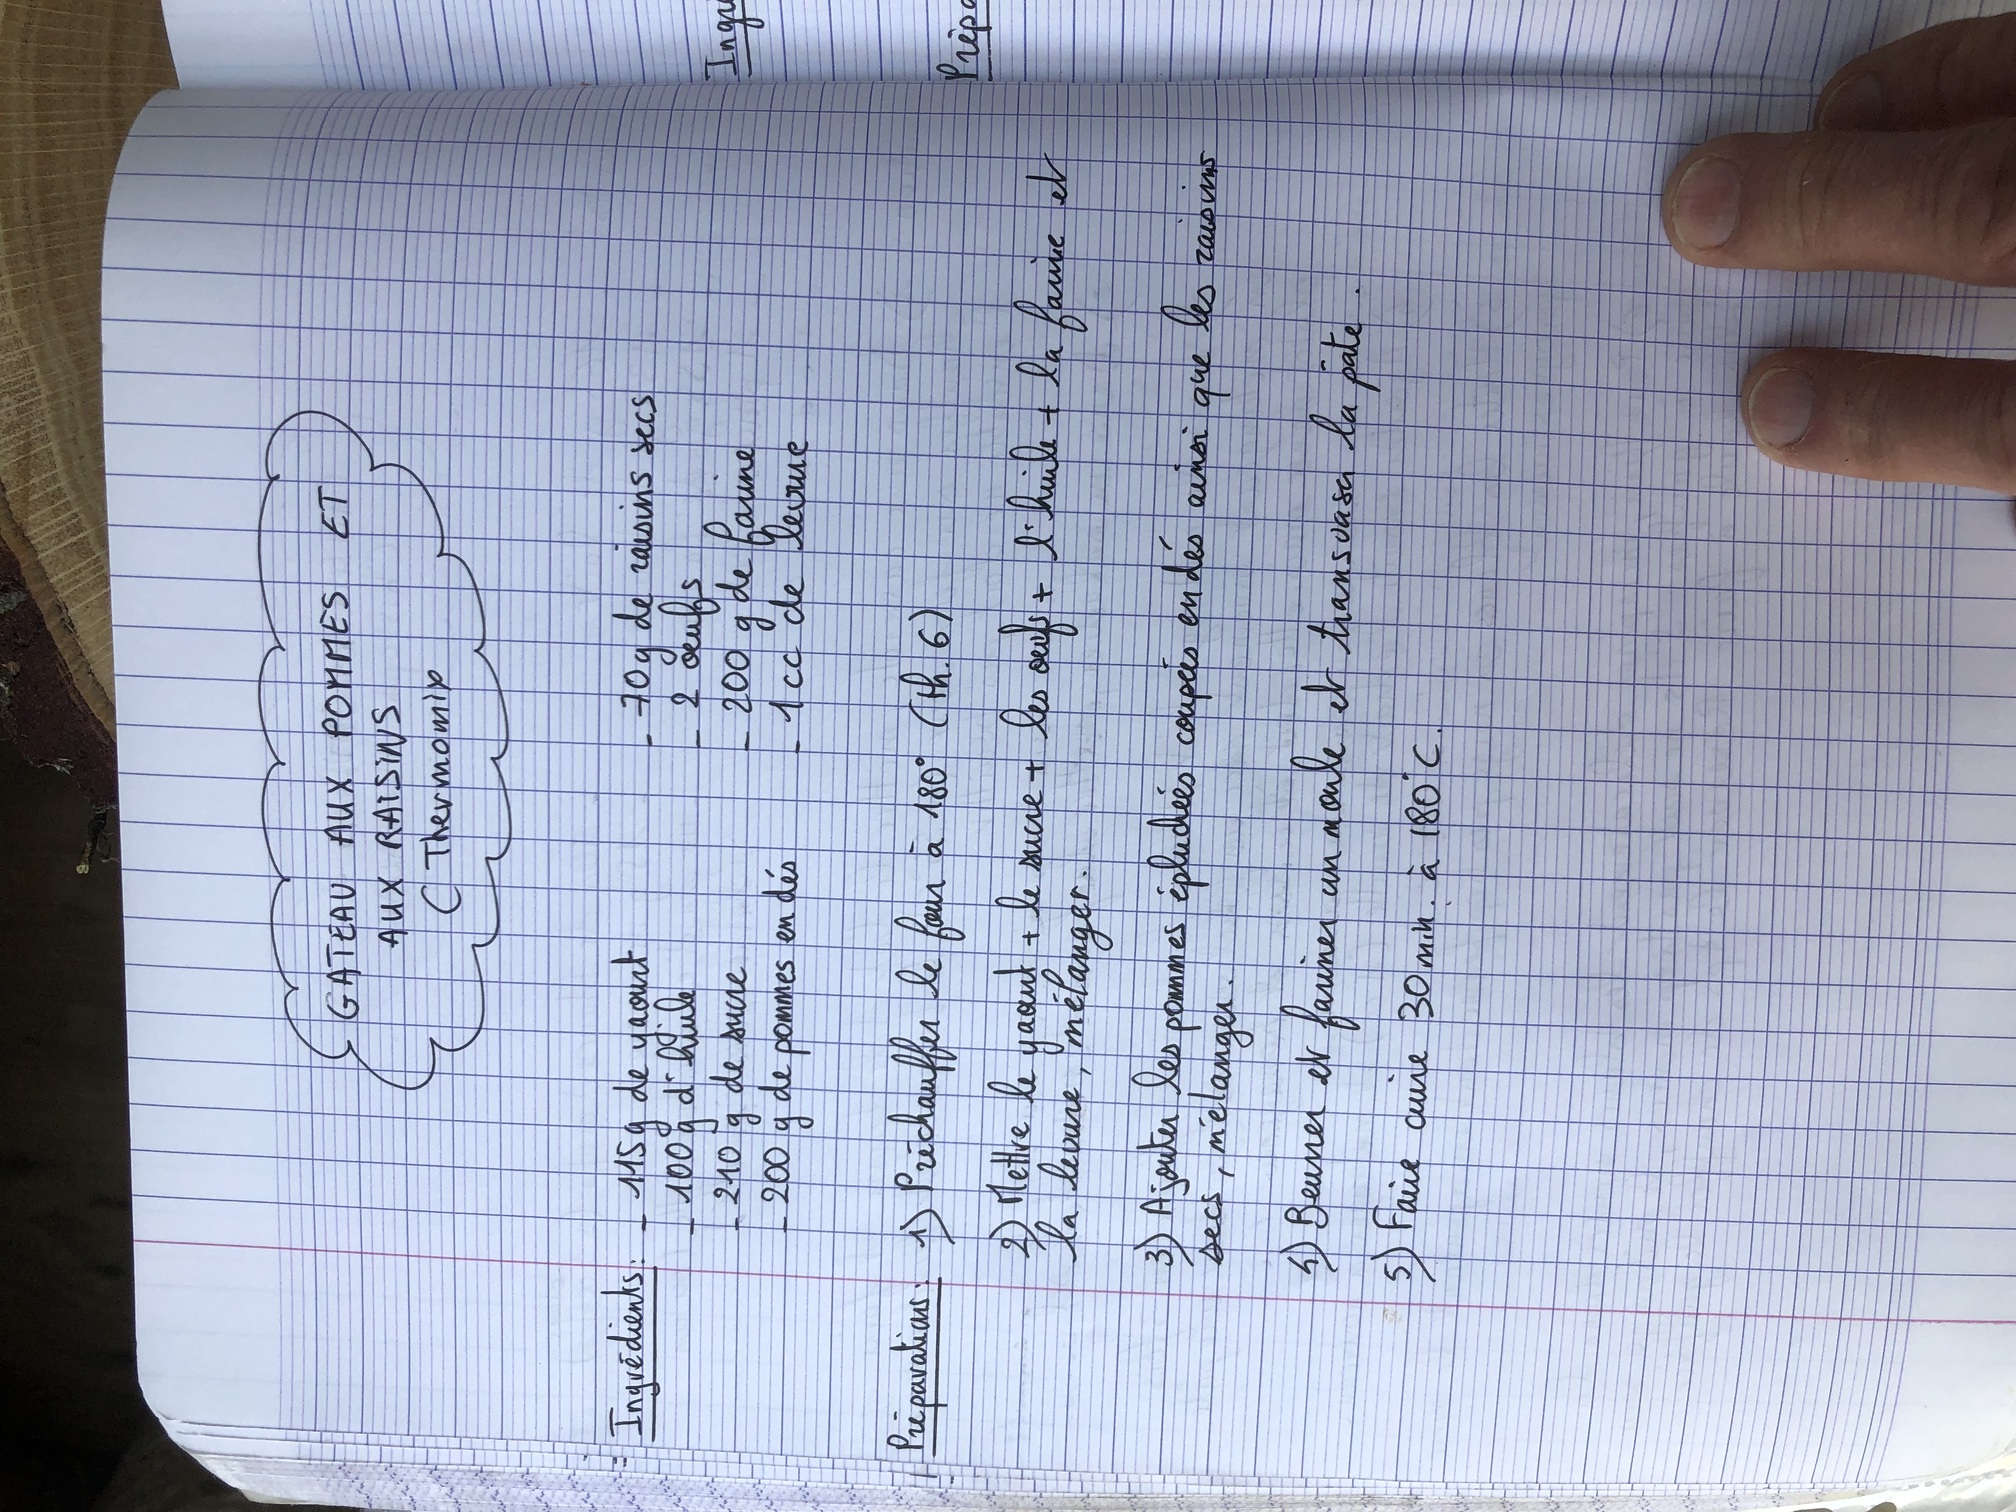 GATEAU AUX POMMES ET
AUX RAISINS
( Thermomix
Ingrédients: - 115g de yaourt
- 100g d'huile
- 210 g de sucre
- 200 g de pommes en dés
- 70g de raisins secs
- 2 oeufs
- 200 g de farine
- 1 cc de levure
Préparations: 1) Préchauffer le four à 180° (th.6)
2) Mettre le yaourt + le sucre + les oeufs + l'huile + la farine et
la levure, mélanger.
3) Ajouter les pommes épluchées coupées en dés ainsi que les raisins
secs, mélanger.
4) Beurrer et fariner un moule et transvaser la pâte.
5) Faire cuire 30 min. à 180°C.
Ingr
Prépa